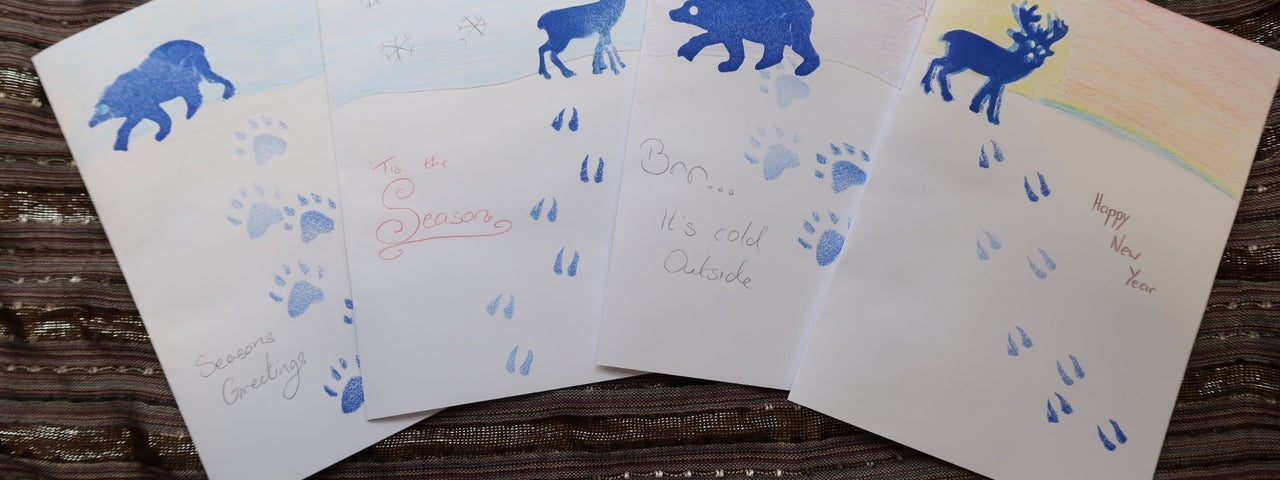 Seasons
Greetings
'Tis the
Season
Brr...
It's cold
Outside
Happy
New
Year